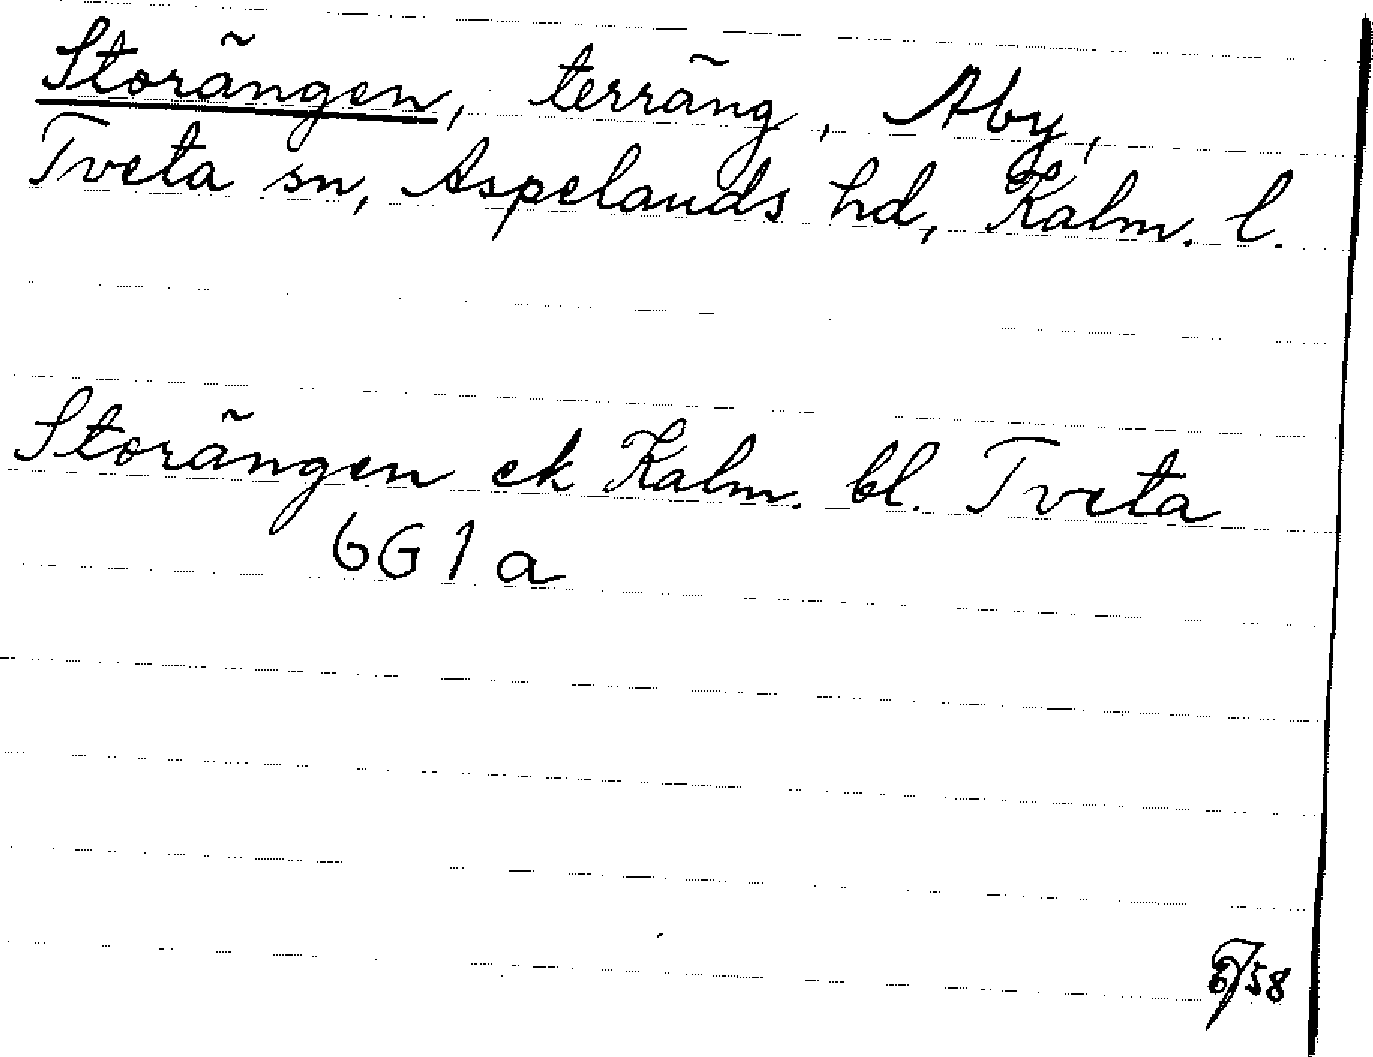 Storängen, terräng, Åby,
Tveta sn, Aspelands hd, Kalm. l.
Storängen ek Kalm. bl. Tveta
6G1a